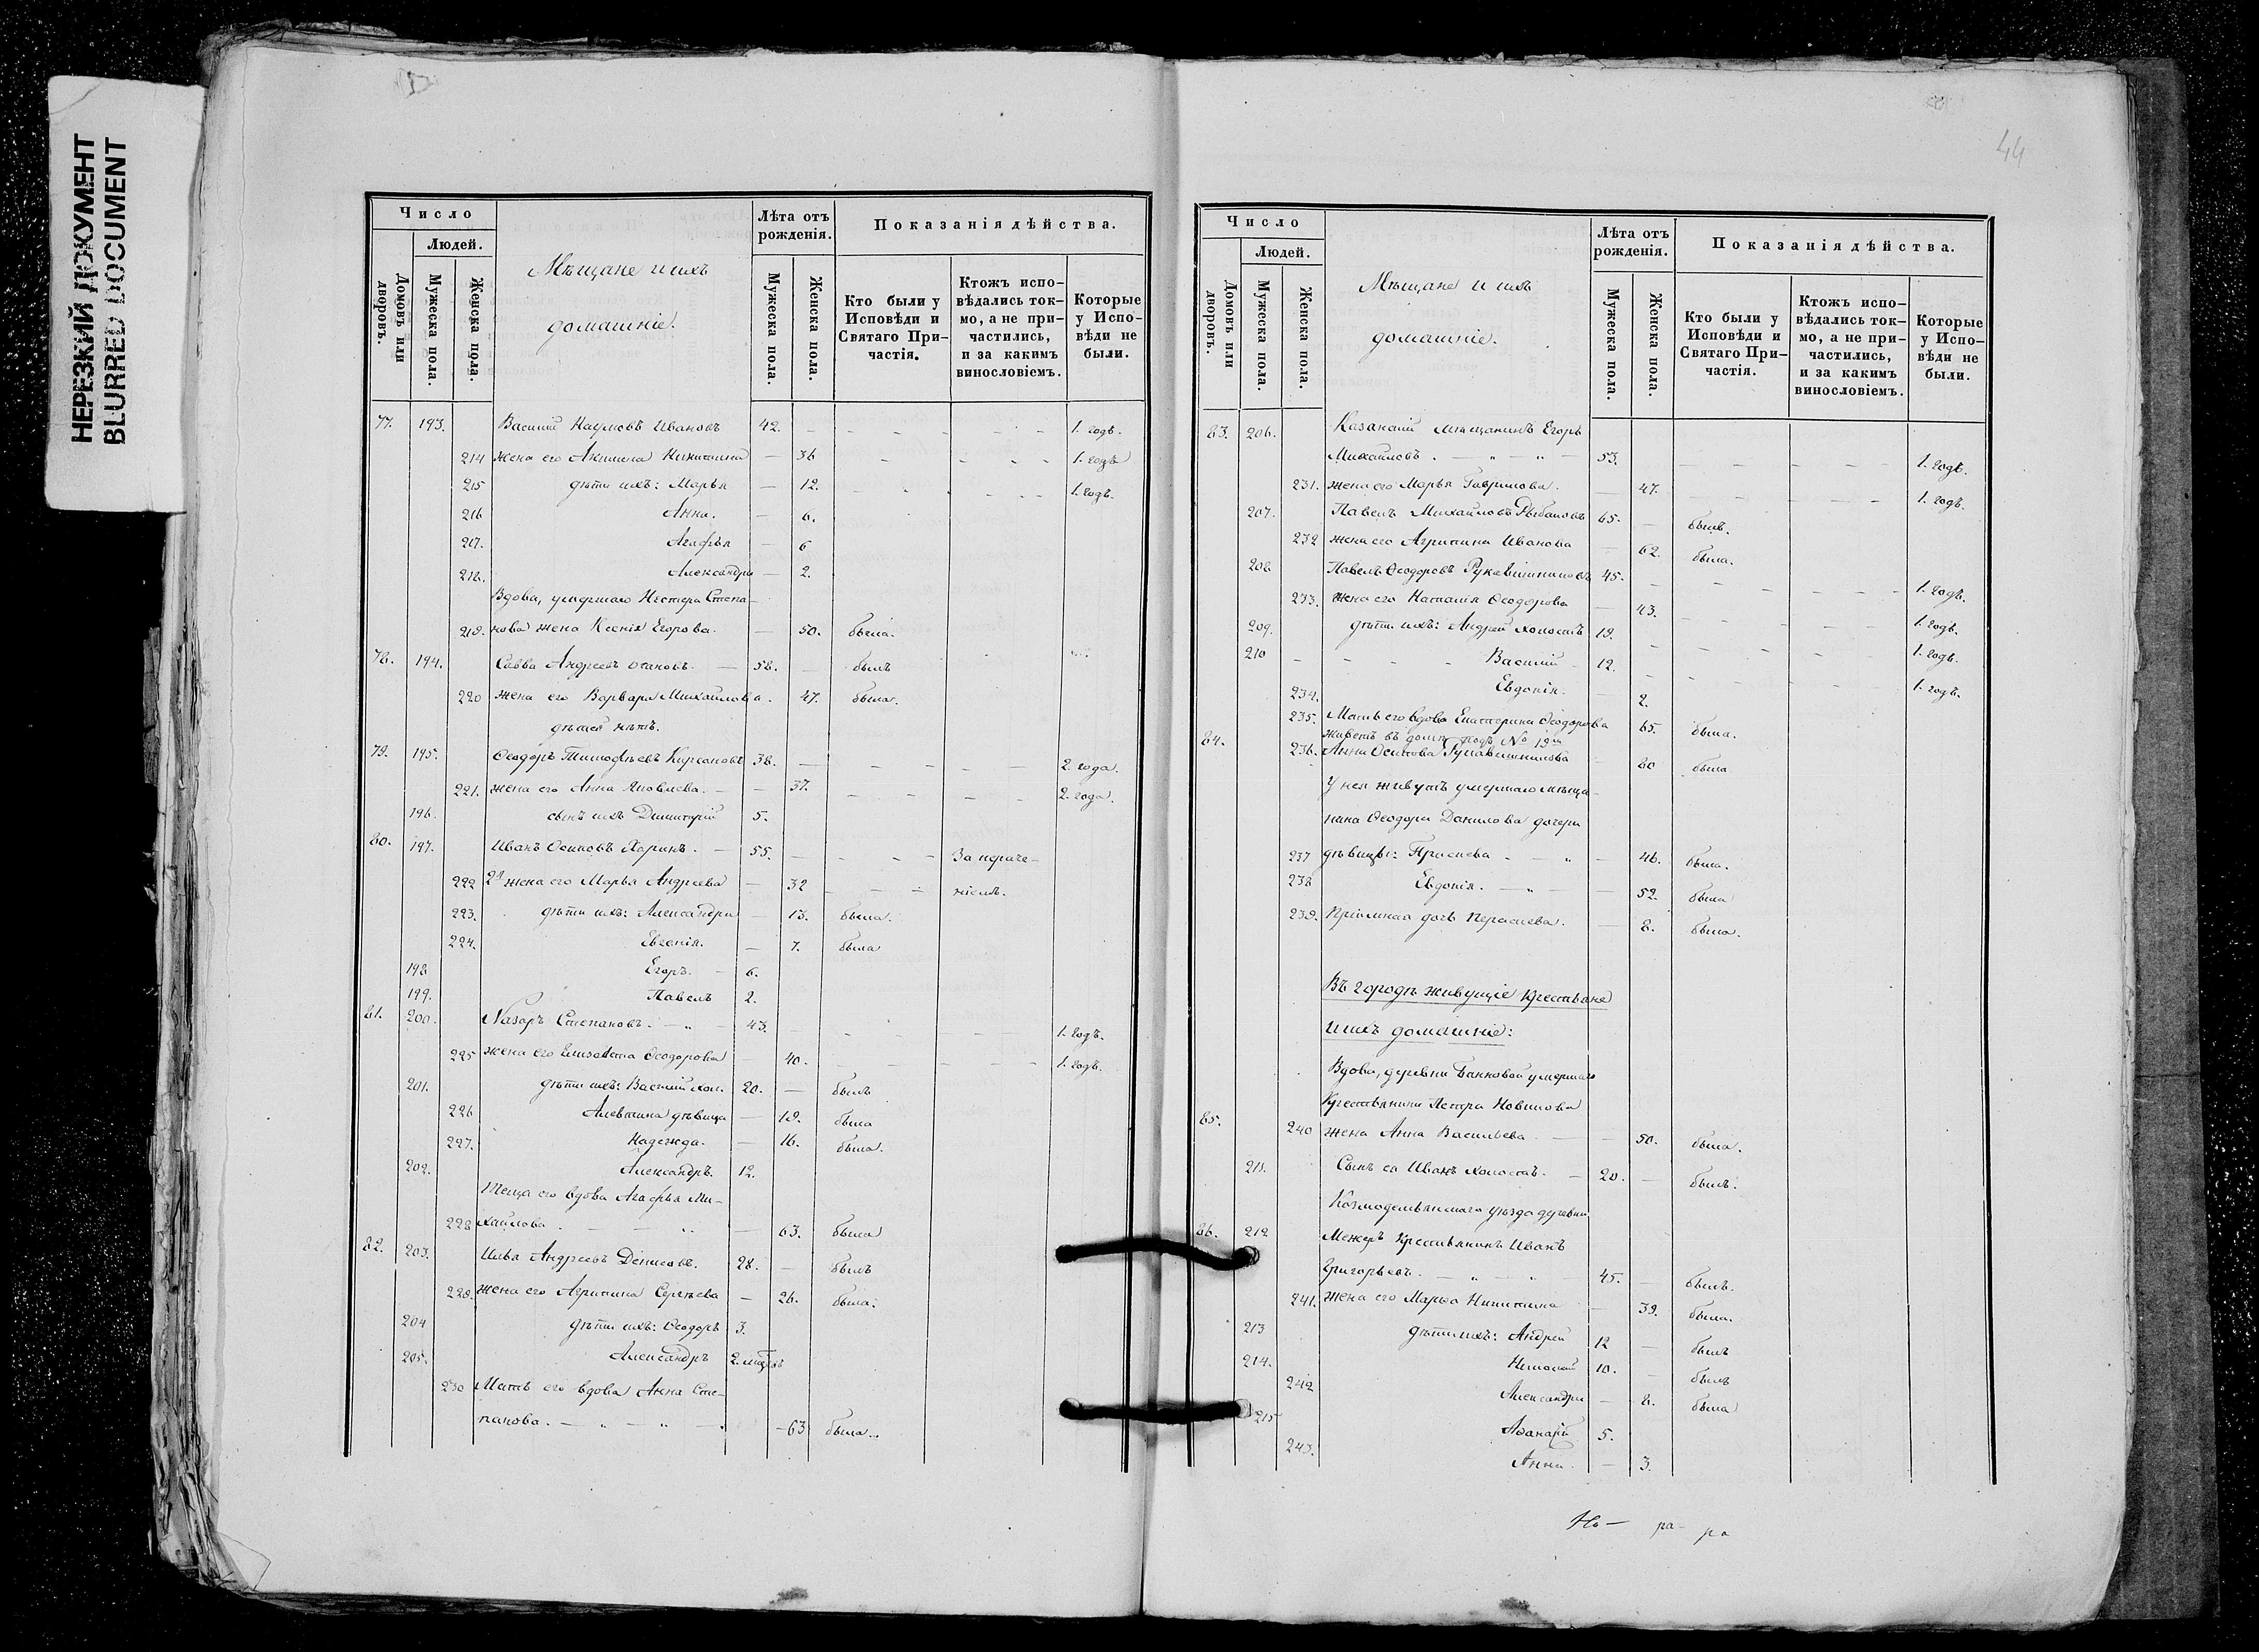 НЕРЕЗКИЙ ДОКУМЕНТ
BLURRED DOCUMENT
Число
Людей.
Домовъ или дворовъ.
Мужеска пола.
Женска пола.
Мѣщане и ихъ
домашніе.
Лѣта отъ рожденія.
Мужеска пола.
Женска пола.
Показанія дѣйства.
Кто были у Исповѣди и Святаго При-частія.
Ктожъ испо-вѣдались ток-мо, а не при-частились, и за какимъ винословіемъ.
Которые у Испо-вѣди не были.
77. 193. Василий Наумовъ Ивановъ 42. - - - - - - 1. годъ.
214 жена его Акилина Никитина - 36 - - - - 1. годъ
215 дѣти ихъ: Марья - 12. - - - - 1. годъ.
216 Анна. - 6.
217. Агафья - 6
218. Александра - 2.
Вдова, умершаго Нестера Степа-
219. нова жена Ксенія Егорова. - 50. была.
78. 194. Савва Андреевъ - 58. былъ
220 жена его Варвара Михайлова. 47. была.
дѣтей нѣтъ.
79. 195. Ѳеодоръ Тимоѳѣевъ Кирсановъ 38. - - - - - 2. года.
221. жена его Анна Яковлева. - - 37. - - - - 2. года.
196. сынъ ихъ Димитрій 5.
80. 197. Иванъ Осиповъ Ларинъ. - 55. - - - - За нераче-
222 2я жена его Марья Андреева - 32 - - - ніемъ.
223. дѣти ихъ: Александра - 13. была.
224. Евгенія. - 7. была
198 Егоръ. - 6.
199. Павелъ 2.
81. 200. Назаръ Степановъ. - „ - 43. - - - - - 1. годъ.
225 жена его Елизавета Ѳеодорова - 40. - - - - 1. годъ.
201. дѣти ихъ: Василій хол. 20. - былъ
226 Алевтина дѣвица - 19. была
227. Надежда. - 16. была.
202. Александръ. 12.
Теща его вдова Агафья Ми-
228 хайлова. - - „ - 63. была
82. 203. Илья Андреевъ Денисовъ. 28. - былъ
229. жена его Агрипина Сергѣева - 26. была.
204 дѣти ихъ: Ѳеодоръ 3.
205. Александръ 2. мѣс.
230 Мать его вдова Анна Сте-
панова. - „ - „ - - 63 была..
44
Число
Людей.
Домовъ или дворовъ.
Мужеска пола.
Женска пола.
Мѣщане и ихъ
домашніе.
Лѣта отъ рожденія.
Мужеска пола.
Женска пола.
Показанія дѣйства.
Кто были у Исповѣди и Святаго При-частія.
Ктожъ испо-вѣдались ток-мо, а не при-частились, и за какимъ винословіемъ.
Которые у Испо-вѣди не были.
83. 206. Казанский мѣщанинъ Егоръ
Михайловъ. - „ - „ - 53. - - - - - 1. годъ.
231. жена его Марья Гаврилова. - 47. - - - - 1. годъ.
207. Павелъ Михайловъ Рыбаковъ 65. - былъ.
232 жена его Агрипина Иванова - 62. была.
208 Павелъ Ѳеодоровъ Рукавишниковъ 45. - - - - - 1. годъ.
233. жена его Наталія Ѳеодорова - 43. - - - - 1. годъ.
209. дѣти ихъ: Андрей холостъ 19. - - - - - 1. годъ.
210 - - - - Василий - 12. - - - - - 1. годъ.
234. Евдокія. - 2.
235. Мать его вдова Екатерина Ѳеодорова 65. была.
84. живетъ въ домѣ подъ № 19м
236. Анна Осипова Рукавишникова - 80 была
У нея живутъ умершаго мѣща-
нина Ѳеодора Данилова дочери
237 дѣвицы: - „ - 46. была.
238 Евдокія. - „ - - 52. была
239. Пріемная дочь - 8. была.
Въ городѣ живущіе Крестьяне
и ихъ домашніе:
Вдова, деревни умершаго
Крестьянина Петра Новикова
85. 240 жена Анна Васильева - - 50. была.
211. Сынъ ея Иванъ холостъ. - 20. - былъ.
Козмодемьянскаго уѣзда деревни
86. 212 Крестьянинъ Иванъ
Григорьевъ. - „ - „ - 45. - былъ.
241. жена его Марья Никитина - 39. была.
213 дѣти ихъ: Андрей 12 - былъ
214. Николай 10. - былъ
242 Александра - 8. была
215 Аѳанасій 5.
243. Анна. - 3.